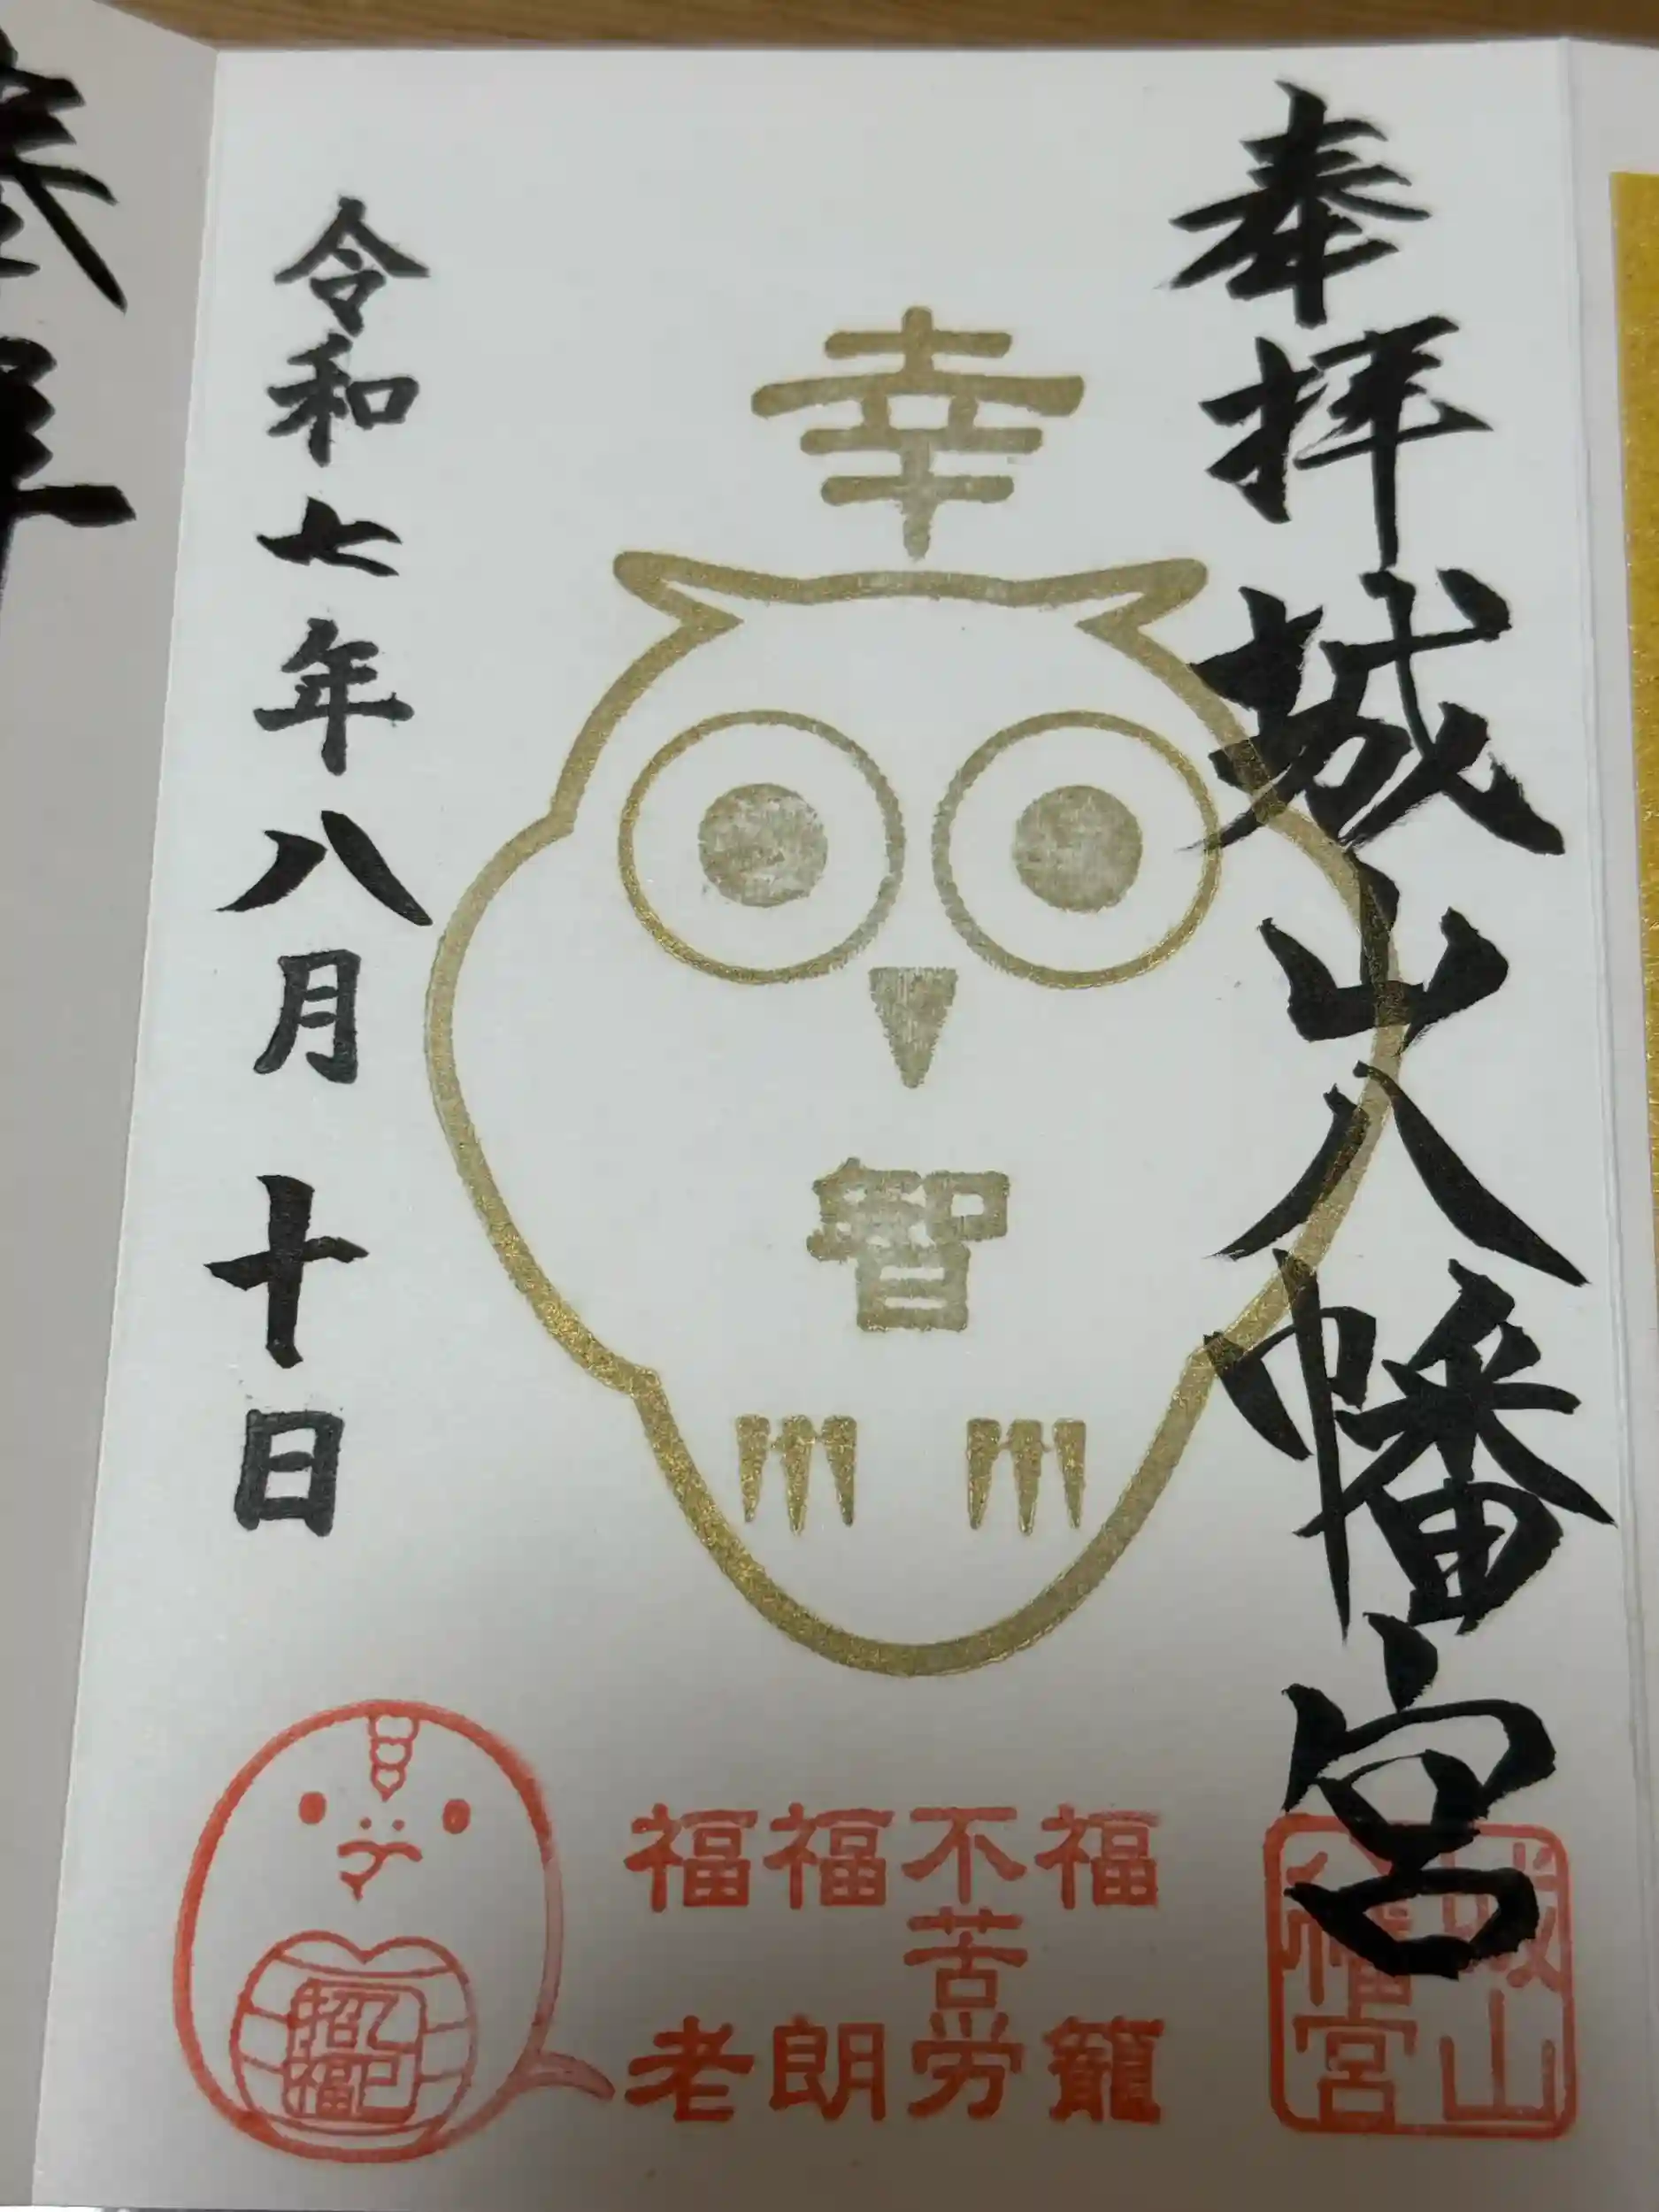 奉拝
城山八幡宮
幸
智
令和七年八月十日
福籠
不苦労
福朗
福老
城山
八幡宮
乙巳
招福